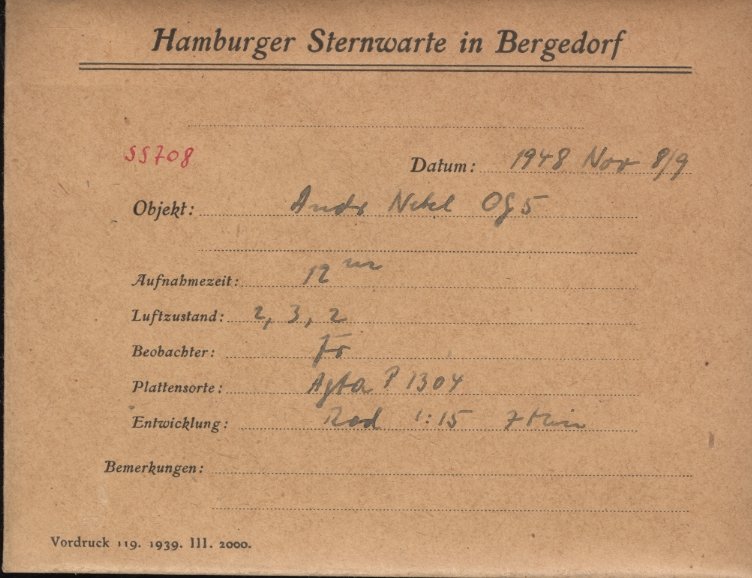 Hamburger Sternwarte in Bergedorf
SS708
Datum: 1948 Nov 8/9
Objekt: Andr Nebel OG5
Aufnahmezeit: 12 m
Luftzustand: 2, 3, 2
Beobachter: Fr
Plattensorte: Agfa P 1304
Entwicklung: Rod 1:15 7 Min
Bemerkungen:
Vordruck 119. 1939. III. 2000.